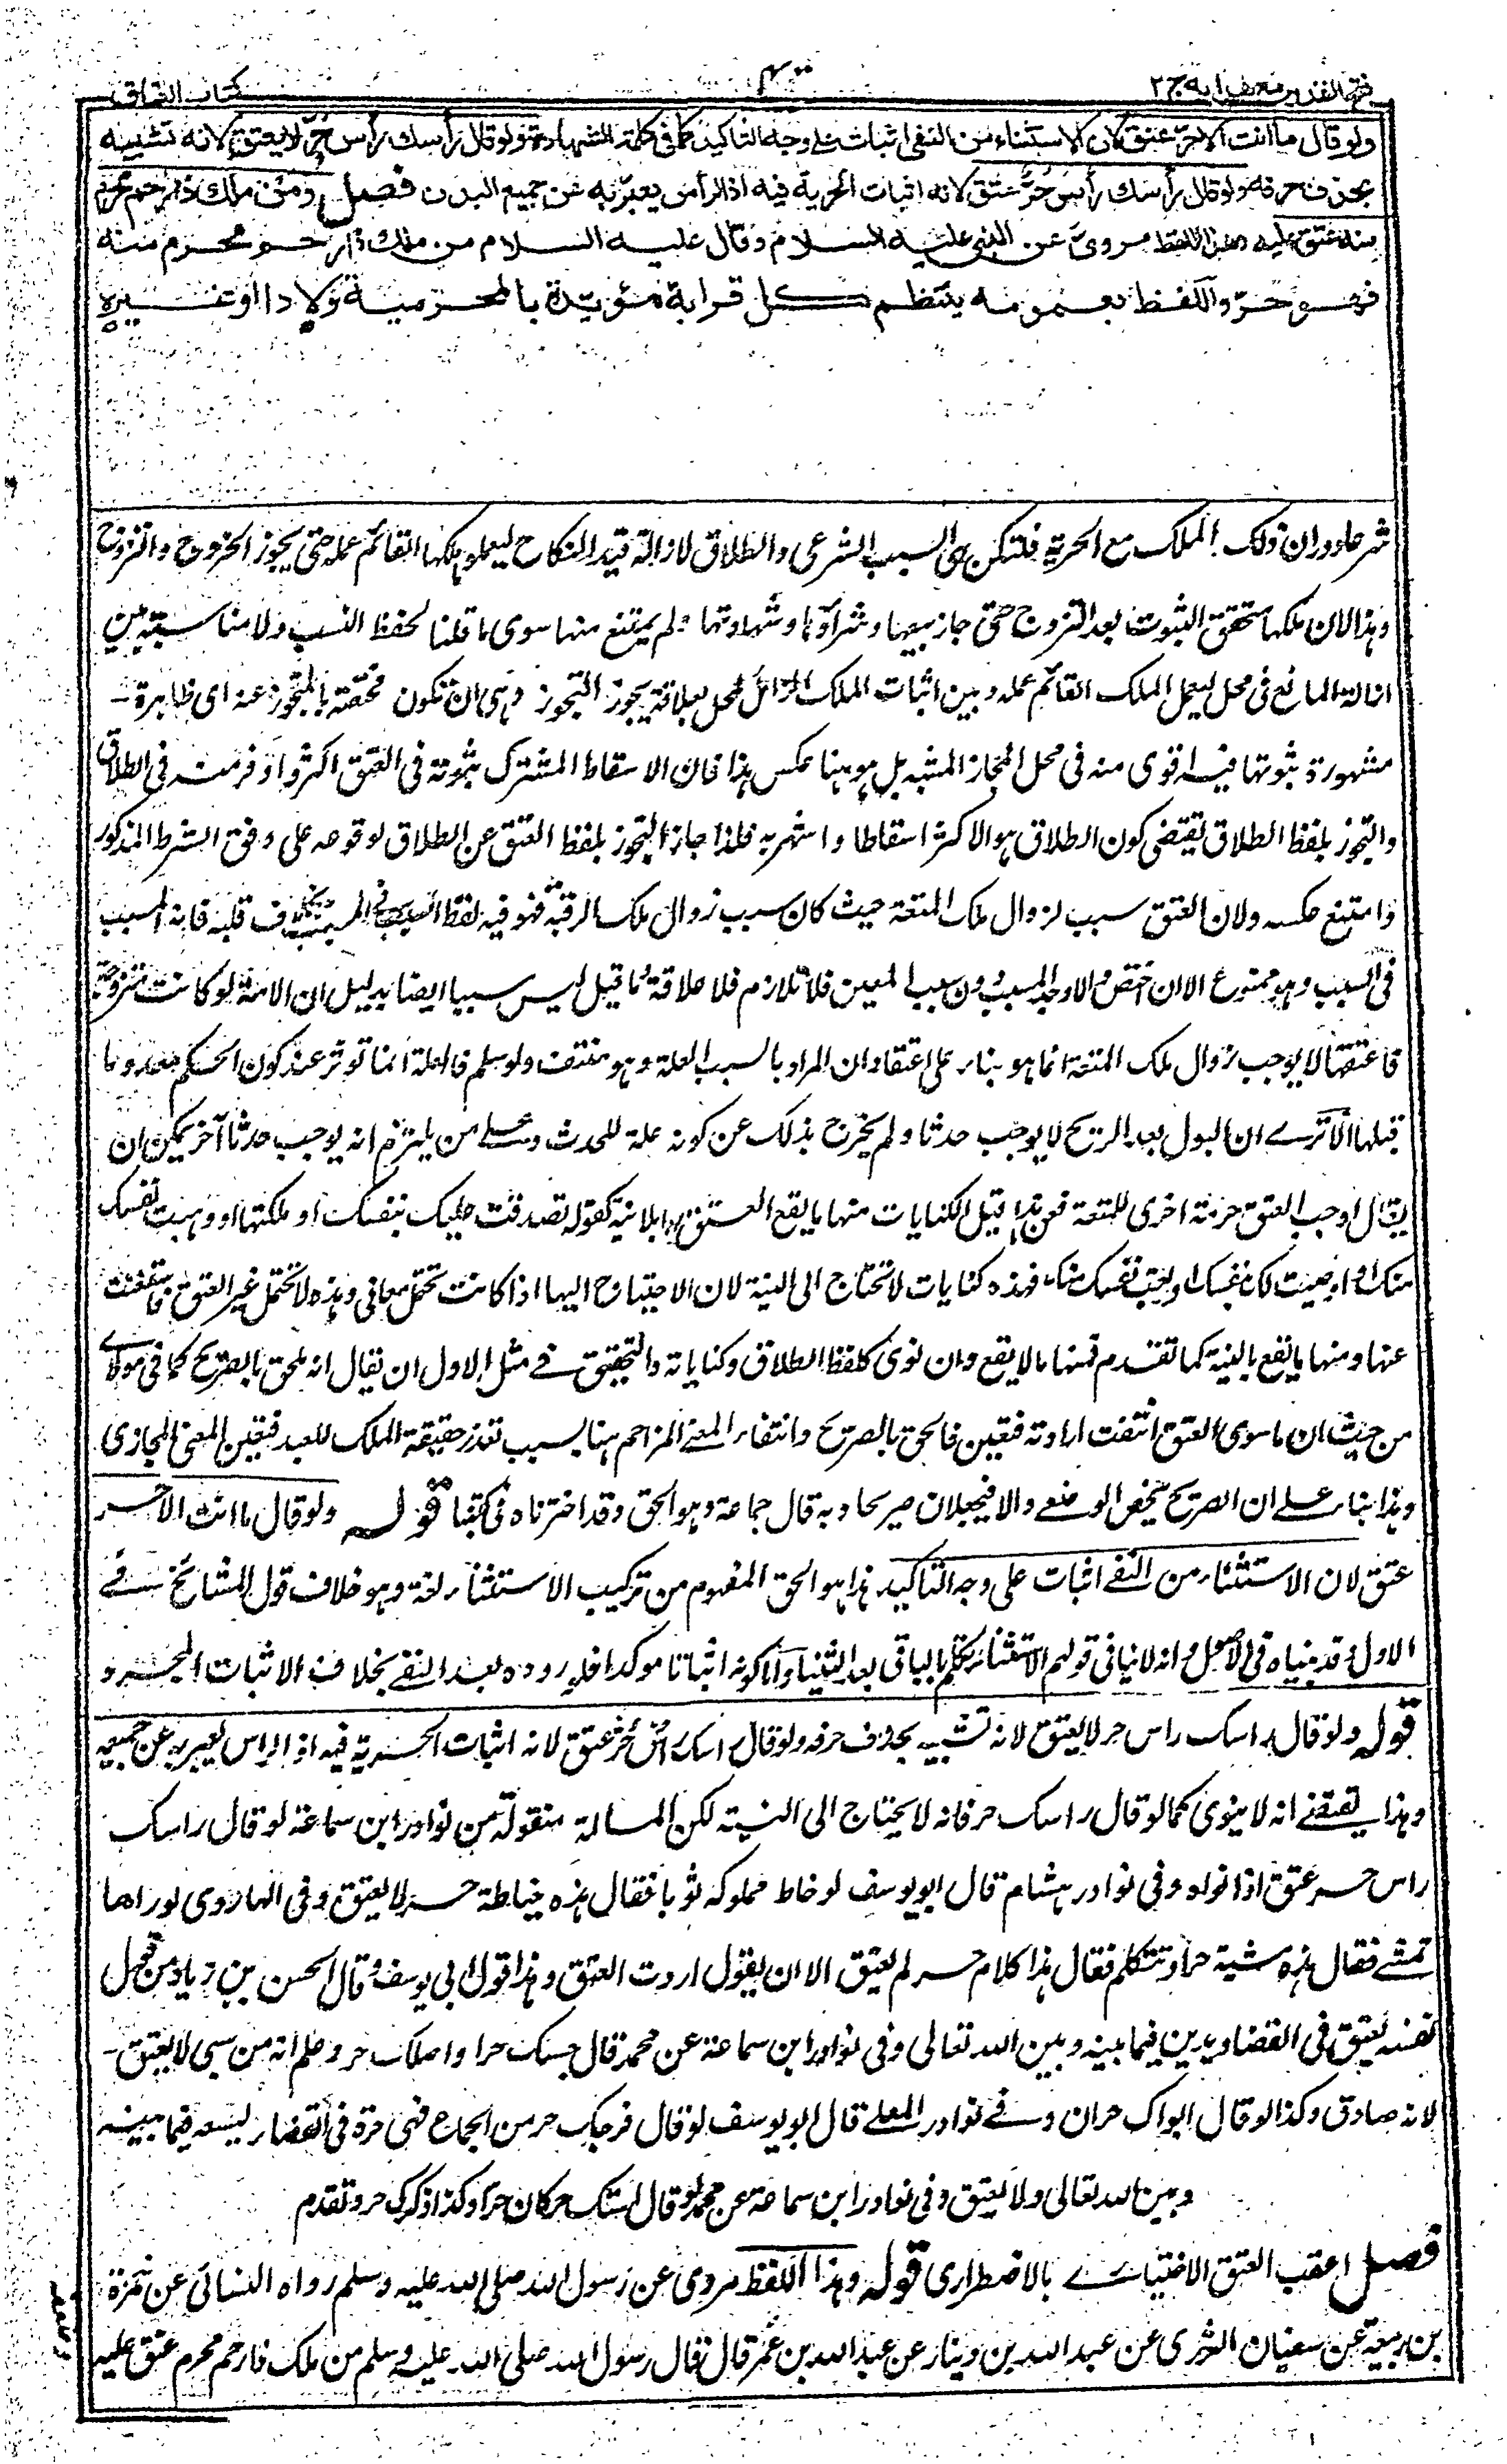 فتح القدير مع هدايه ج ٢
كتاب العتاق
ولو قال ما انت الا حر عتق لان الاستثناء من النفى اثبات على وجه التاكيد كما فى كلمة الشهادة ولو قال رأسك رأس حر لا يعتق لانه تشبيه
بحذف حرفه ولو قال رأسك رأس حر عتق لانه اثبات الحرية فيه اذ الرأس يعبر به عن جميع البدن فصل ومن ملك ذا رحم محرم
منه عتق عليه وهذا اللفظ مروى عن النبى عليه السلام وقال عليه السلام من ملك ذا رحم محرم منه
فهو حر واللفظ بعمومه ينتظم كل قرابة مؤيدة بالمحرمية ولادا او غيره
شرعا دوران ذلك الملك مع الحرية فلتكن هى السبب الشرعى والطلاق لازالة قيد النكاح ليعمل ملكها القائم عمله حتى يجوز الخروج والتزوج
وهذا لان ملكها متحقق الثبوت بعد التزوج حتى جاز بيعها وشراؤها وشهادتها ولم يمتنع منها سوى ما قلنا لحفظ النسب ولا مناسبة بين
ازالة المانع فى محل ليعمل الملك القائم عمله وبين اثبات الملك الزائل لمحل بعلاقة يجوز التجوز وهى ان تكون مختصة بالمتجوز عنه اى ظاهرة
مشهورة ثبوتها فيه اقوى منه فى محل المجاز المشبه بل هو هنا عكس هذا فان الاسقاط المشترك ثبوته فى العتق اكثر واوفر منه فى الطلاق
والتجوز بلفظ الطلاق يقتضى كون الطلاق هو الاكثر اسقاطا واشهر به فلذا جاز التجوز بلفظ العتق عن الطلاق لوقوعه على وفق الشرط المذكور
وامتنع عكسه ولان العتق سبب لزوال ملك المتعة حيث كان سبب زوال ملك الرقبة فهو فيه لفظ السبب فى المسبب بخلاف قلبه فانه المسبب
فى السبب وهو ممنوع الا ان اختص والا وجد المسبب دون سبب المعين فلا تلازم فلا علاقة وما قيل ليس سببا ايضا بدليل ان الامة لو كانت متزوجة
فاعتقها لا يوجب زوال ملك المتعة انما هو بناء على اعتقاد ان المراد بالسبب العلة وهو منتف ولو سلم فالعلة انما توثر عند كون الحكم معدوما
قبلها الا ترى ان البول بعد الريح لا يوجب حدثا ولم يخرج بذلك عن كونه علة للحدث وعلى من يلتزم انه يوجب حدثا آخر يمكن ان
يقال اوجب العتق حرمة اخرى للمتعة فمن هذا قيل الكنايات منها ما يقع العتق بها بلا نية كقوله تصدقت عليك بنفسك او ملكتها او وهبت نفسك
منك او اوصيت لك بنفسك او بعت نفسك منك فهذه كنايات لا تحتاج الى النية لان الاحتياج اليها اذا كانت تحتمل معانى وهذه لا تحتمل غير العتق فاستغنت
عنها ومنها ما يقع بالنية كما تقدم ومنها ما لا يقع وان نوى كلفظ الطلاق وكناياته والتحقيق فى مثل الاول ان يقال انه ملحق بالصريح كما فى مولاى
من حيث ان ما سوى العتق انتفت ارادته فتعين فالحق بالصريح وانتفاء المعنى المزاحم هنا بسبب تعذر حقيقة الملك للعبد فتعين المعنى المجازى
وهذا بناء على ان الصريح يخص الوضعى والا فيجعلان صريحا وبه قال جماعة وهو الحق وقد اخترناه فى كتبنا قوله ولو قال ما انت الا حر
عتق لان الاستثناء من النفى اثبات على وجه التاكيد هذا هو الحق المفهوم من تركيب الاستثناء لغة وهو خلاف قول المشائخ فى
الاول وقد بيناه فى الاصول وانه لا ينافى قولهم الاستثناء تكلم بالباقى بعد الثنيا واما كونه اثباتا موكدا فلوروده بعد النفى بخلاف الاثبات المجرد
قوله ولو قال راسك راس حر لا يعتق لانه تشبيه بحذف حرفه ولو قال راسك راس حر عتق لانه اثبات الحرية فيه اذ الراس يعبر به عن جميعه
وهذا يقتضى انه لا ينوى كما لو قال راسك حر فانه لا يحتاج الى النية لكن المسالة منقولة من نوادر ابن سماعة لو قال راسك
راس حر عتق اذا نواه وفى نوادر هشام قال ابو يوسف لو خاط مملوكه ثوبا فقال هذه خياطة حر لا يعتق وفى الهارونى لو راها
تمشى فقال هذه مشية حر او تتكلم فقال هذا كلام حر لم يعتق الا ان يقول اردت العتق وهذا قول ابى يوسف وقال الحسن بن زياد من قبل
نفسه يعتق فى القضا ويدين فيما بينه وبين الله تعالى وفى نوادر ابن سماعة عن محمد قال حسبك حر او اصلك حر وعلم انه من سبى لا يعتق
لانه صادق وكذا لو قال ابواك حران وفى نوادر المعلى قال ابو يوسف لو قال فرجك حر من الجماع فهى حرة فى القضاء يسعه فيما بينه
وبين الله تعالى ولا يعتق وفى نوادر ابن سماعة عن محمد لو قال استك حر كان حرا وكذا ذكرك حر وتقدم
فصل اعقب العتق الاختيارى بالاضطرارى قوله وهذا اللفظ مروى عن رسول الله صلى الله عليه وسلم رواه النسائى عن ضمرة
بن ربيعة عن سفيان الثورى عن عبد الله بن دينار عن عبد الله بن عمر قال قال رسول الله صلى الله عليه وسلم من ملك ذا رحم محرم عتق عليه